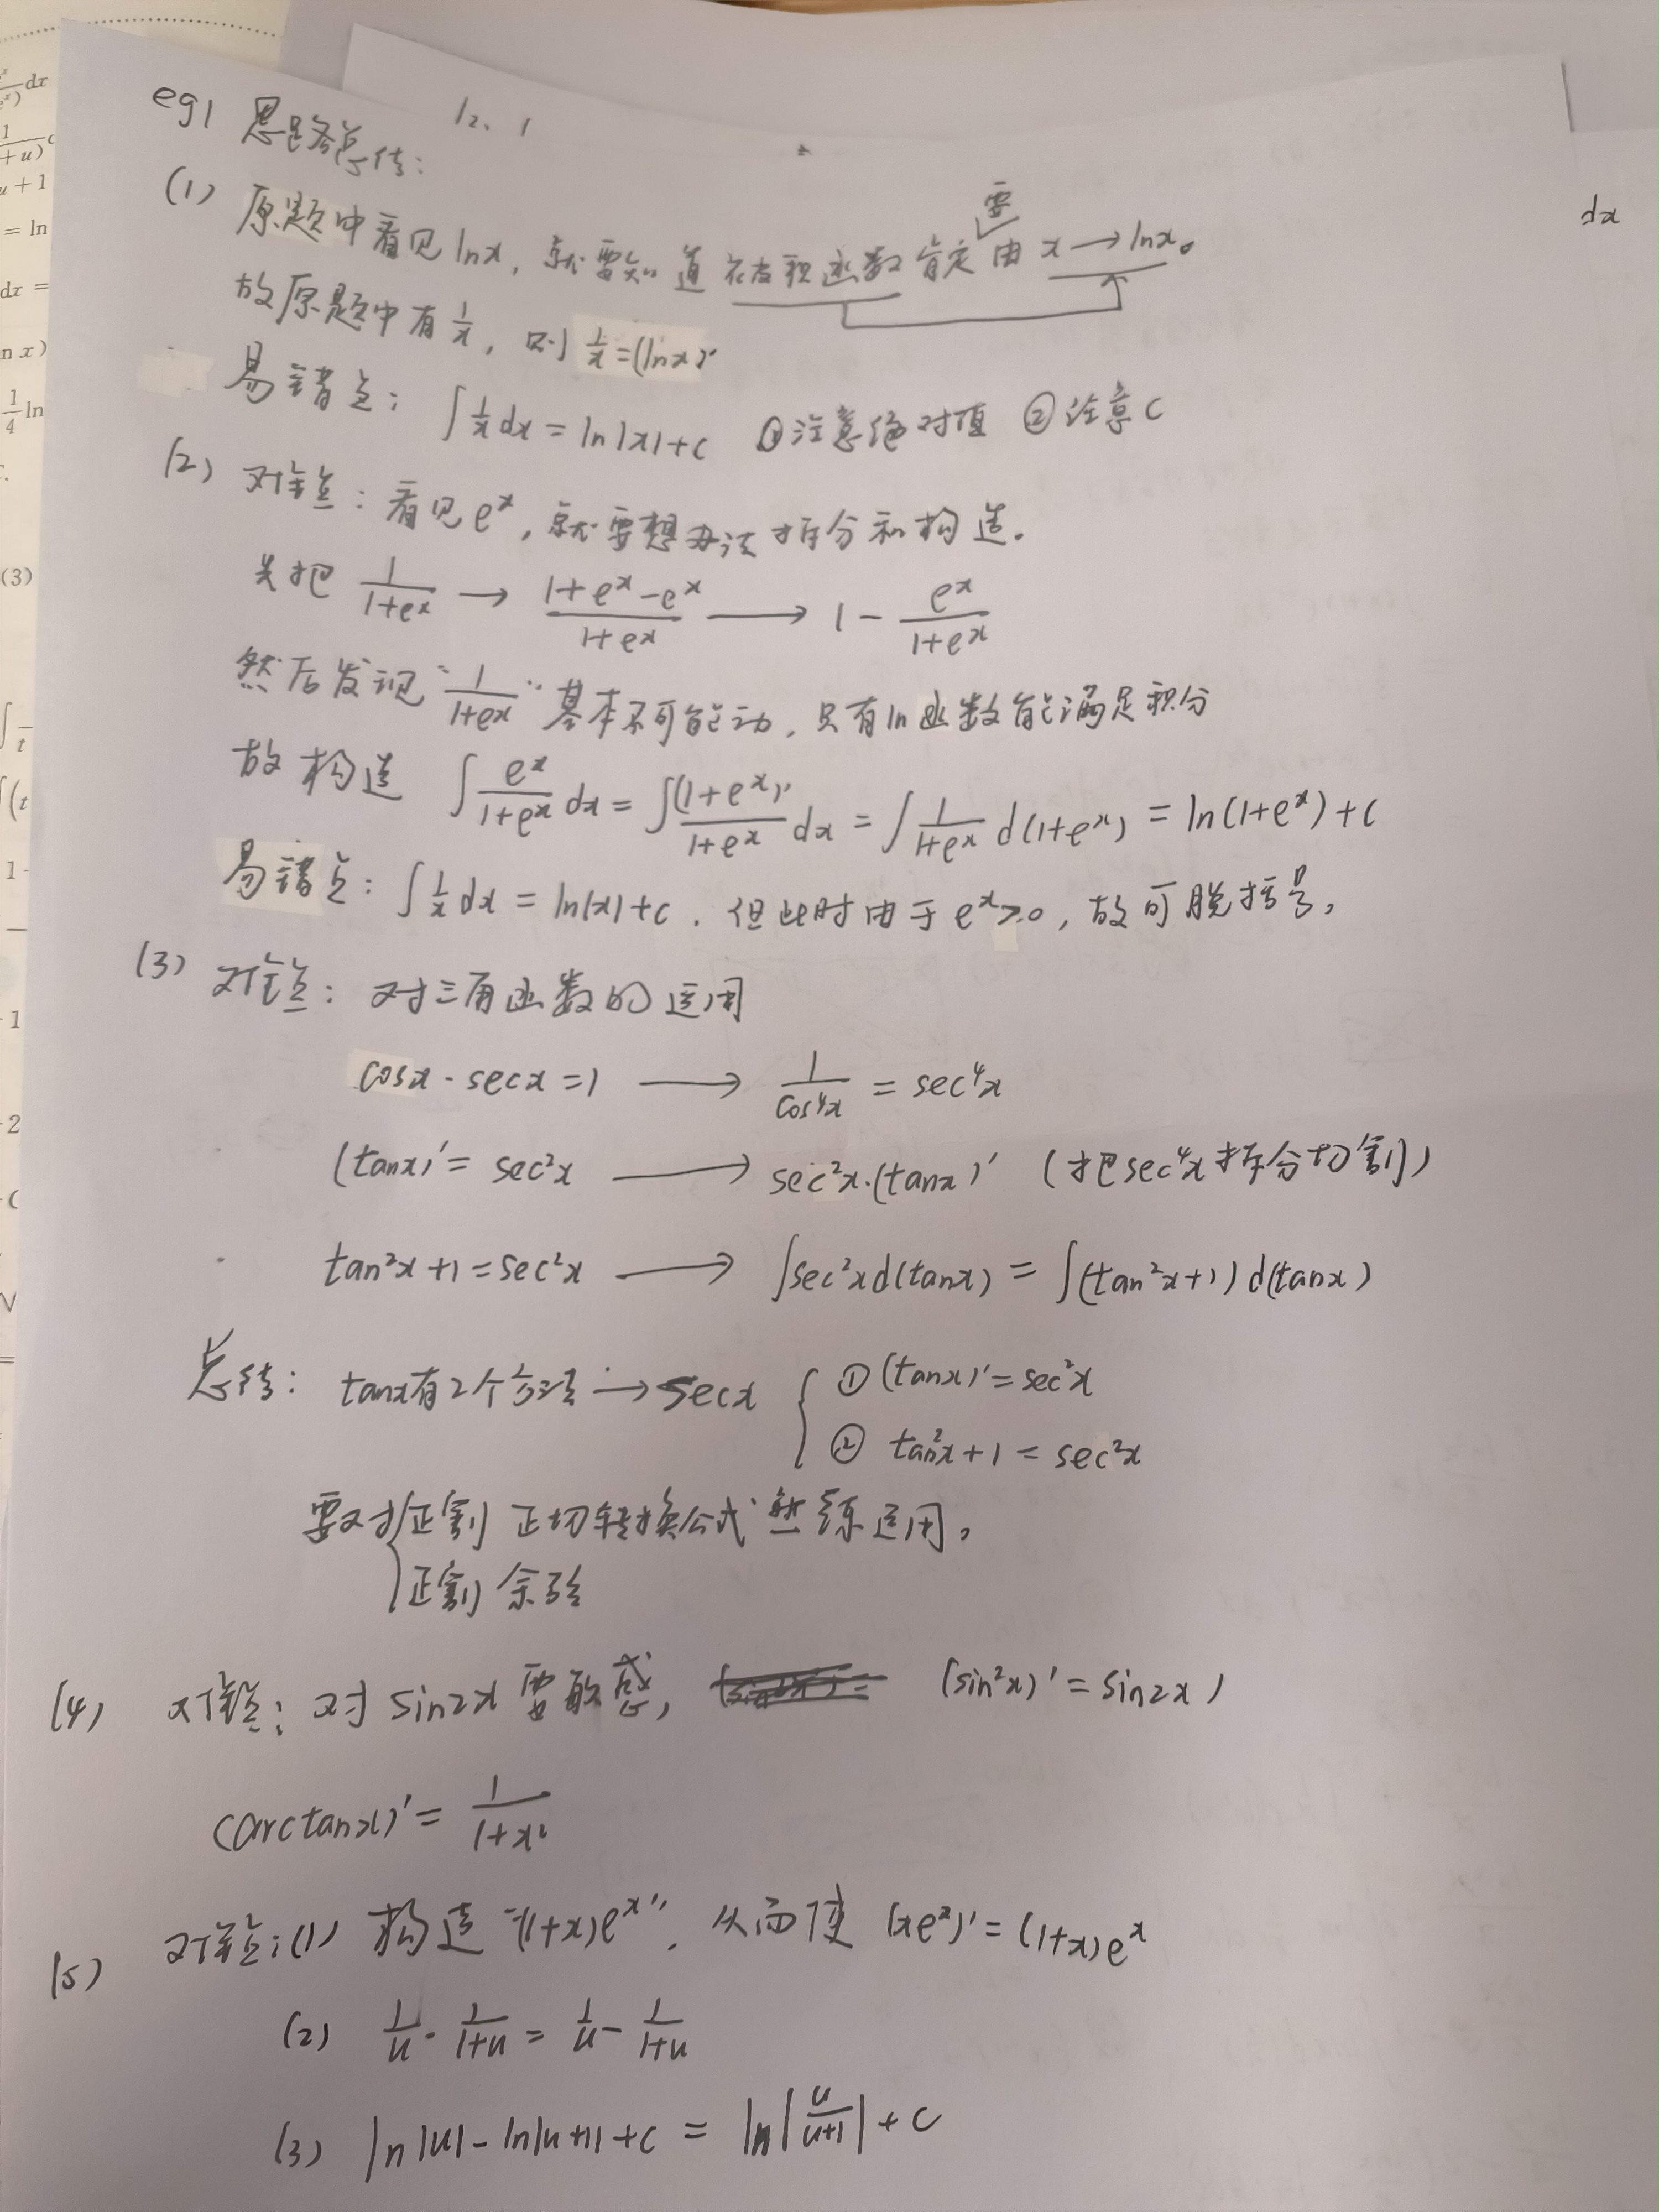 eg1 思路总结:
12、1
(1) 原题中看见lnx, 就要知道在被积函数肯定要由 x → lnx。
dx
故原题中有 1/x, 则 1/x = (lnx)'
易错点: ∫ 1/x dx = ln|x|+c ①注意绝对值 ②注意C
(2) 难点: 看见 e^x, 就要想办法拆分和构造.
先把 1/(1+e^x) → (1+e^x-e^x)/(1+e^x) → 1 - e^x/(1+e^x)
然后发现 "1/(1+e^x)" 基本不可能动, 只有ln函数能满足积分
故构造 ∫ e^x/(1+e^x) dx = ∫ (1+e^x)'/(1+e^x) dx = ∫ 1/(1+e^x) d(1+e^x) = ln(1+e^x)+c
易错点: ∫ 1/x dx = ln|x|+c. 但此时由于 e^x>0, 故可脱括号,
(3) 难点: 对三角函数的运用
cosx · secx = 1 → 1/cos⁴x = sec⁴x
(tanx)' = sec²x → sec²x·(tanx)' (把sec⁴x拆分切割)
tan²x+1 = sec²x → ∫sec²x d(tanx) = ∫(tan²x+1) d(tanx)
总结: tanx有2个方法 → secx { ① (tanx)' = sec²x
② tan²x+1 = sec²x
要对{正割 正切转换公式熟练运用。
正割 余弦
(4) 难点: 对 sin2x 要敏感, (sin²x)' = sin2x)
(arctanx)' = 1/(1+x²)
(5) 难点:(1) 构造 "(1+x)e^x", 从而使 (xe^x)' = (1+x)e^x
(2) 1/u · 1/(1+u) = 1/u - 1/(1+u)
(3) ln|u| - ln|u+1| + c = ln|u/(u+1)| + c